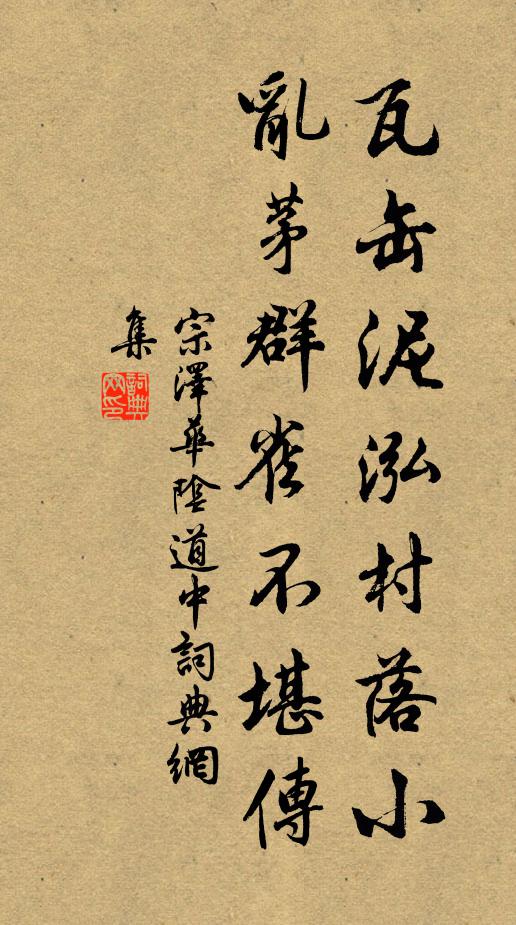 瓦缶泥泓村落小
亂茅群雀不堪傳
宗澤華陰道中詞典網
集
詞典